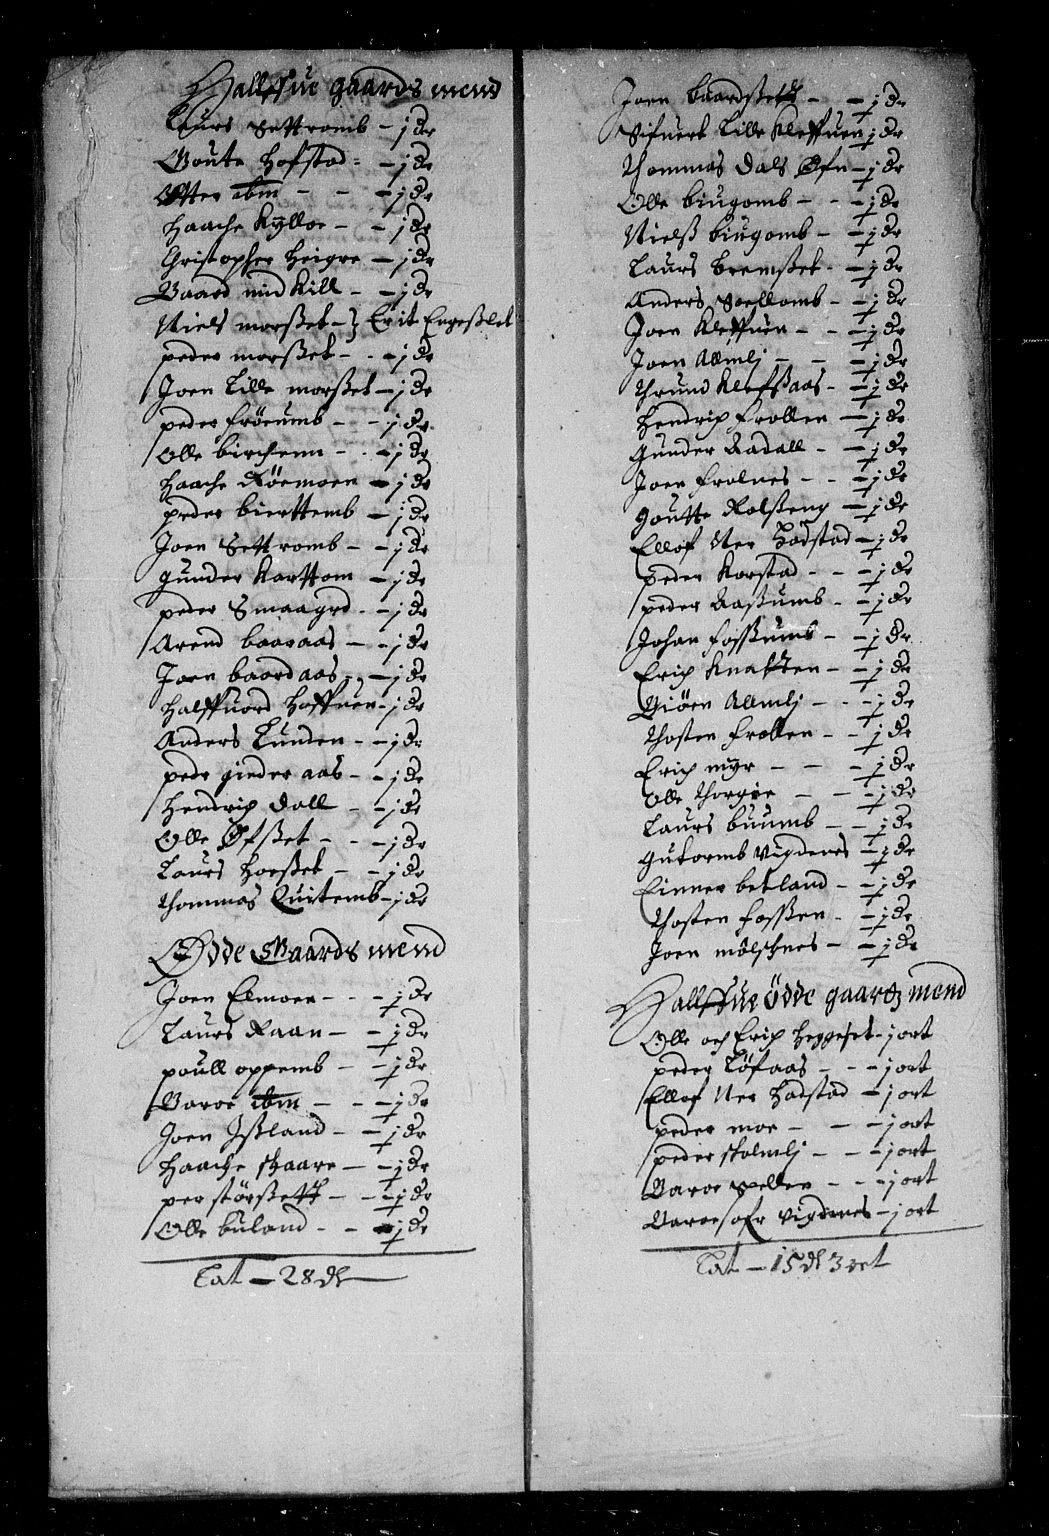 Hallffue gaards mend
Laurs Settromb - j dr
Goute Hofstad - - j dr
Otter ibm - - - j dr
Haache Kylloe - - j dr
Christopher Heigre - j dr
Baard mid Kill - - j dr
Niels morsset - } Erit Engesslet
peder morsset - - - j dr
Joen Lille morsset - j dr
peder frörumb - - - j dr
Olle birchenn - - - j dr
Haache Röemoen - j dr
peder bierttemb - j dr
Joen Settromb - - j dr
gunder Karttom - j dr
peder Smaagrd - - j dr
Arend baaraas - - j dr
Joen baardaas - - j dr
Halffuord Hoffuen - j dr
Anders Lunden - - j dr
peder gieder aas - - j dr
Hendrich Dall - - j dr
Olle Öfsset - - - j dr
Laurs Horsset - - j dr
Thommas Quitemb - j dr
Ödde Gaards mend
Joen Elmoen - - - j dr
Laurs Raan - - j dr
poull oppemb - - j dr
Baroe ibm - - - j dr
Joen Issland - - j dr
Haache skaare - - j dr
per störssett - - - j dr
Olle buland - - j dr
Lat - 28 dr
Joen baardssett - - j dr
Sifuert Lille Kleffuen j dr
Thommas Dals Öfn - j dr
Olle biugomb - - - j dr
Nielss biugomb - - j dr
Laurs bremsset - - j dr
Anders Soellomb - - j dr
Joen Kleffuen - - - j dr
Joen Allmlj - - - j dr
Thrund Klefssaas - - j dr
Hendrich frollen - j dr
Gunder Aadall - - j dr
Joen frolnes - - - j dr
Goutte Rolsseng - j dr
Ellof Ner Hadstad - j dr
peder Korstad - - - j dr
peder Aassumb - - j dr
Johan fossumb - - j dr
Erich Knatten - - j dr
Biöen Allmlj - - - j dr
Thosten frollen - - j dr
Erich myr - - - j dr
Olle Thorgöe - - - j dr
Laurs buumb - - j dr
Gutormb vigdenes - j dr
Einner betland - - j dr
Thosten fossen - - j dr
Joen mölschnes - - j dr
Hallffue ödde gaardz mend
Olle och Erich Heggeset - j ort
peder Löfaas - - - j ort
Ellof Ner Hadstad - j ort
peder moe - - - j ort
peder skolmlj - - - j ort
Baroe Spellen - - - j ort
Baroe vigdenes - j ort
Lat - 15 dr 3 ort